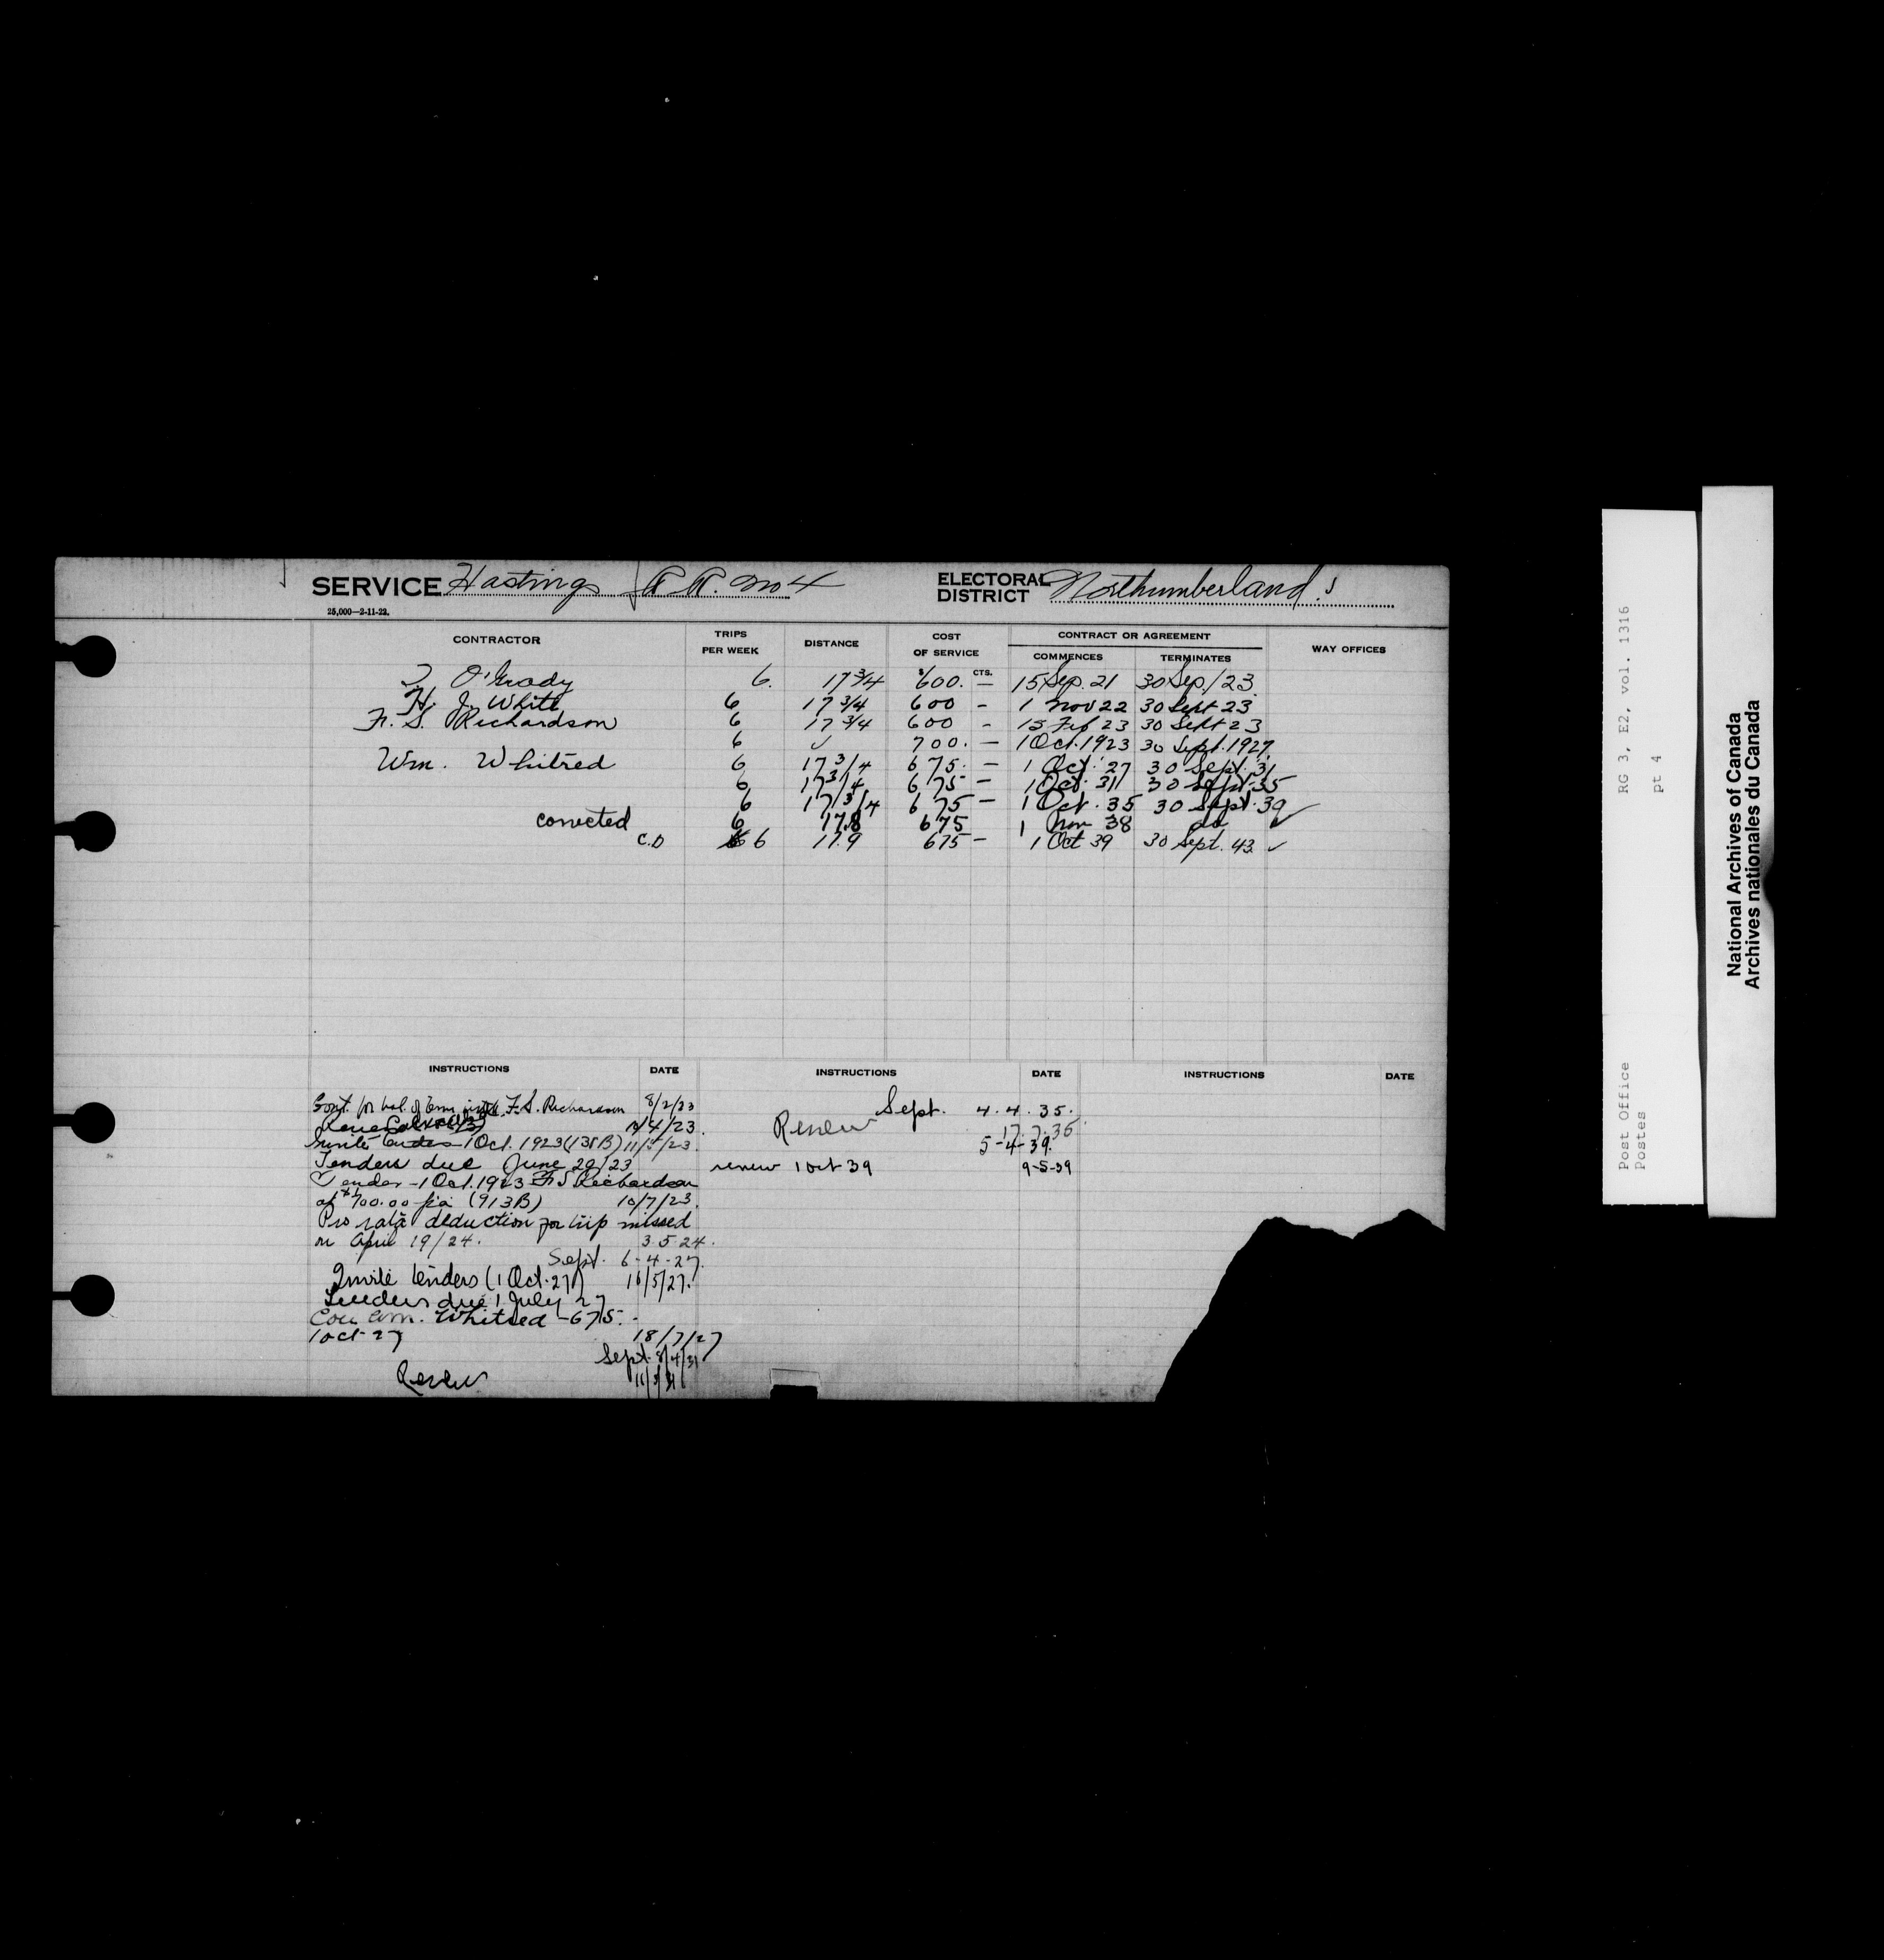 SERVICE Hastings R.R. No 4 ELECTORAL DISTRICT Northumberland
25,000—2-11-22.
CONTRACTOR TRIPS PER WEEK DISTANCE COST OF SERVICE CONTRACT OR AGREEMENT COMMENCES TERMINATES WAY OFFICES
$ CTS.
O'Grady 6. 17 3/4 600. — 15 Sep. 21 30 Sep./23.
H. J. White 6 17 3/4 600 - 1 Nov 22 30 Sept 23
F. S. Richardson 6 17 3/4 600 - 15 Feb 23 30 Sept 23
6 ✓ 700. — 1 Oct. 1923 30 Sept. 1927.
Wm. Whitred 6 17 3/4 675. — 1 Oct. 27 30 Sept. 31
6 17 3/4 675 — 1 Oct. 31 30 Sept. 35
6 17 3/4 675 — 1 Oct. 35 30 Sept. 39 ✓
corrected 6 17.8 675 1 Nov 38 do ✓
C.D 6 17.9 675 — 1 Oct 39 30 Sept. 43. ✓
INSTRUCTIONS DATE INSTRUCTIONS DATE INSTRUCTIONS DATE
Cont. for bal. of term with F. S. Richardson 8/2/23
4/23.
Invite tenders 1 Oct. 1923 (138B) 11/5/23.
Tenders due June 29/23
Tender - 1 Oct. 1923 F S Richardson
at $700.00 p.a (913B) 10/7/23.
Pro rata deduction for trip missed
on April 19/24. 3.5.24.
Sept. 6-4-27.
Invite tenders (1 Oct. 27) 16/5/27.
Tenders due 1 July 27
Con Wm. Whitred - 675. -
1 Oct-27 18/7/27
Sept. 8/4/31
Renew 11/5/31
Sept. 4.4.35.
Renew 17.7.35.
5-4-39.
renew 1 Oct 39 9-5-39
RG 3, E2, vol. 1316
pt 4
Post Office
Postes
National Archives of Canada
Archives nationales du Canada